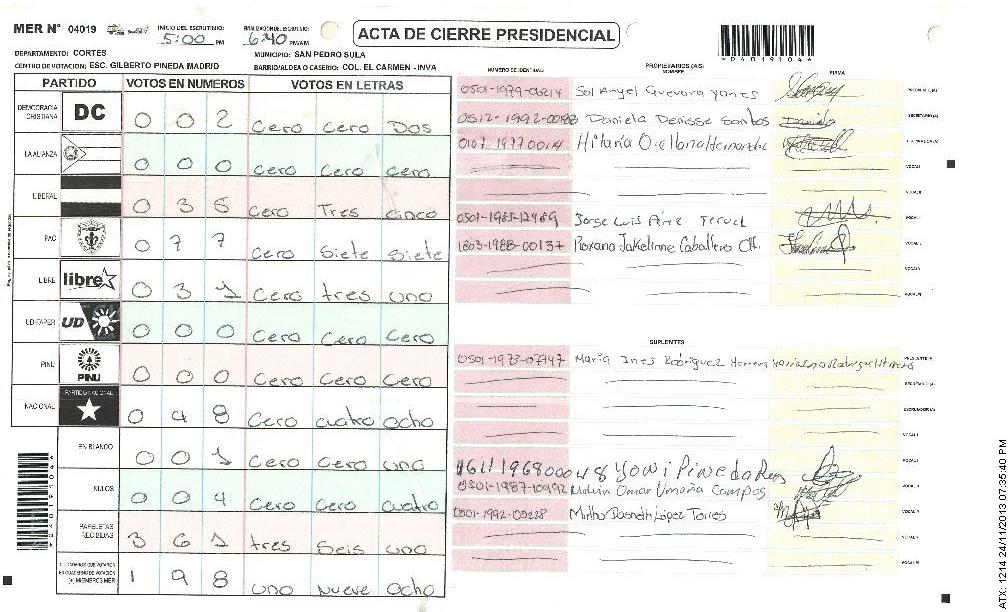 MER N° 04019 INICIO DEL ESCRUTINIO: 5:00 PM 6:40 PM/AM
ACTA DE CIERRE PRESIDENCIAL
*04019104*
DEPARTAMENTO: CORTES MUNICIPIO: SAN PEDRO SULA
CENTRO DE VOTACION: ESC. GILBERTO PINEDA MADRID BARRIO/ALDEA O CASERIO: COL. EL CARMEN - INVA
PARTIDO VOTOS EN NUMEROS VOTOS EN LETRAS
DEMOCRACIA CRISTIANA DC 0 0 2 Cero Cero Dos
LA ALIANZA 0 0 0 Cero Cero Cero
LIBERAL 0 3 5 Cero Tres cinco
PAC 0 7 7 Cero Siete Siete
LIBRE libre 0 3 1 Cero tres uno
UD-FAPER UD 0 0 0 Cero Cero Cero
PINU PINU 0 0 0 Cero Cero Cero
NACIONAL PARTIDO NACIONAL 0 4 8 Cero cuatro ocho
EN BLANCO 0 0 1 Cero Cero uno
NULOS 0 0 4 Cero Cero cuatro
PAPELETAS RECIBIDAS 3 6 1 tres Seis uno
CIUDADANOS QUE VOTARON EN CUADERNO DE VOTACION (+) MIEMBROS MER 1 9 8 uno nueve ocho
NUMERO DE IDENTIDAD PROPIETARIOS (AS) NOMBRE FIRMA
0501-1979-05214 Sol Angel Guevara Yanes
0512-1992-00188 Daniela Denisse Santos Daniela
0107-1977 0014 Hilaria Orellana Hernandez
0501-1985-12489 Jorge Luis Pérez Teruel
1803-1988-00137 Roxana Jakelinne Caballero
SUPLENTES
0501-1973-07947 Maria Ines Rodriguez Herrera
1611 1968000 48 Yoni Pineda
0501-1987-10992 Omar Umaña Campos
0501-1992-05228 Mirtha López Torres
*04019104*
ATX: 1214 24/11/2013 07:35:40 PM